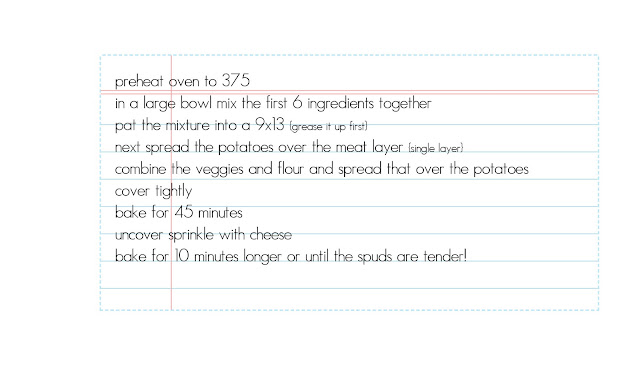 preheat oven to 375
in a large bowl mix the first 6 ingredients together
pat the mixture into a 9x13 {grease it up first}
next spread the potatoes over the meat layer {single layer}
combine the veggies and flour and spread that over the potatoes
cover tightly
bake for 45 minutes
uncover sprinkle with cheese
bake for 10 minutes longer or until the spuds are tender!